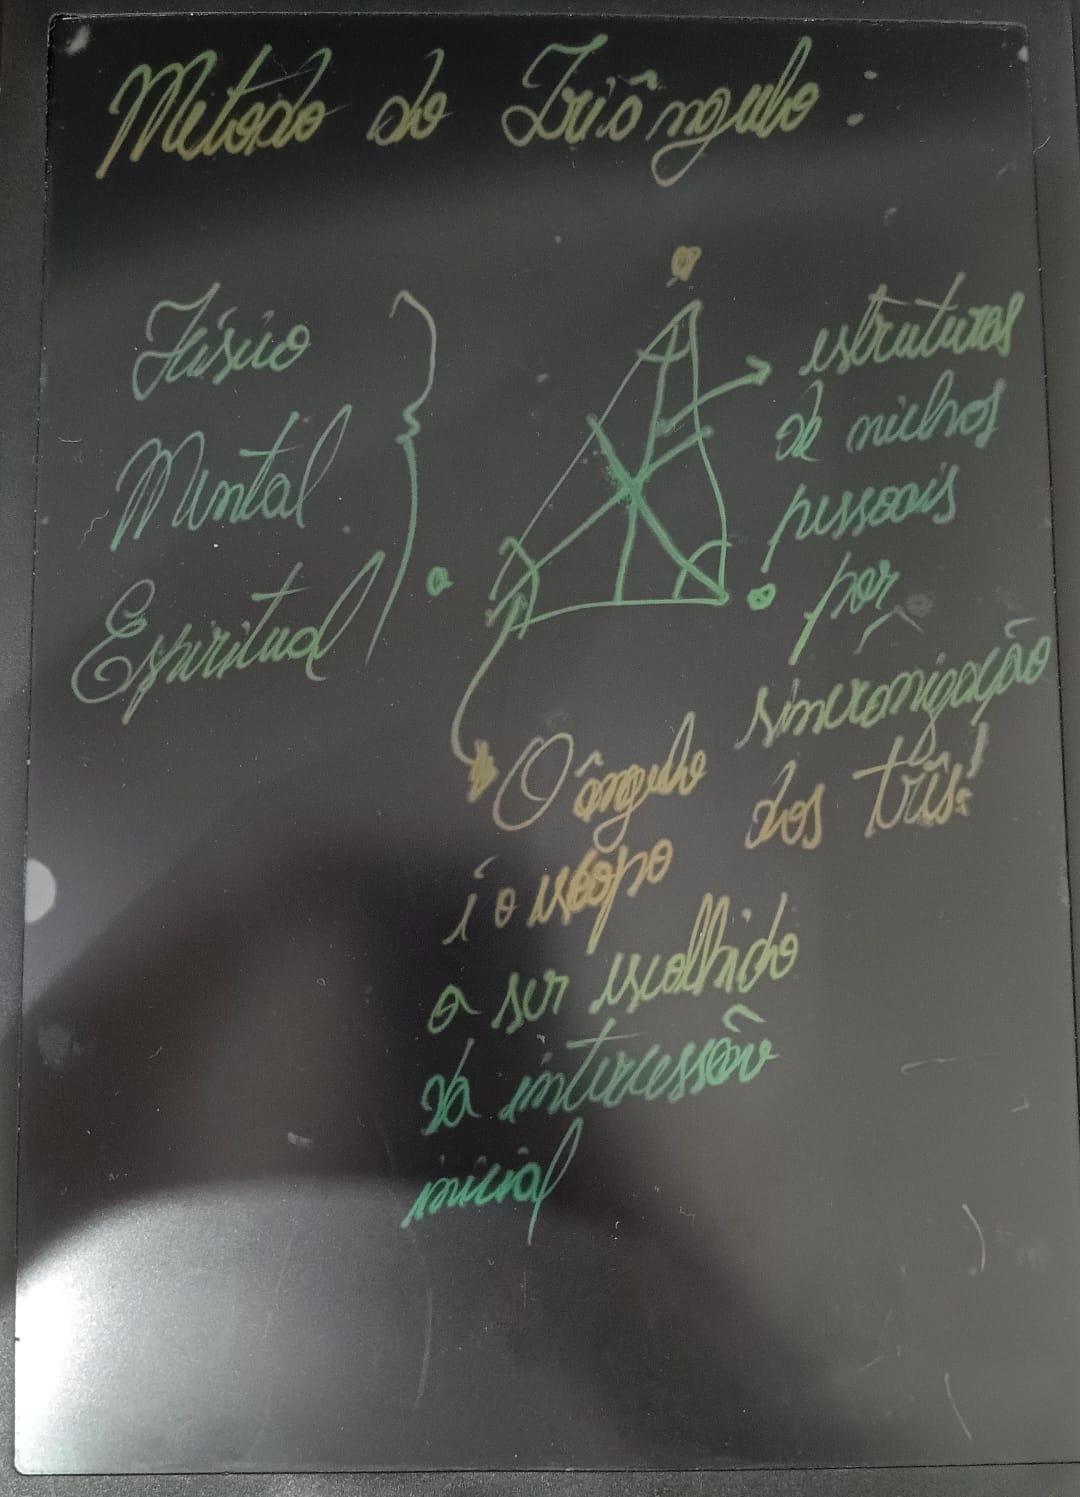 Método do Triângulo:
Físico
Mental
Espiritual
estruturas
de nichos
pessoais
por
sincronização
dos três!
O ângulo
é o escopo
a ser escolhido
da intercessão
inicial